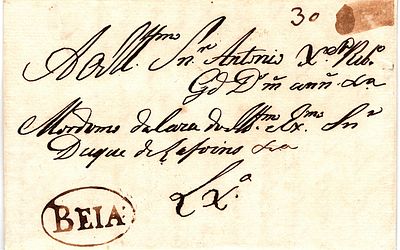 30
Ao Illmo Snr Antonio Xer Rib.o
Gd Ds m ann &a
Mordomo da Caza do Illmo e Exmo Snr
Duque de Lafoins &a
Lxa
BEJA